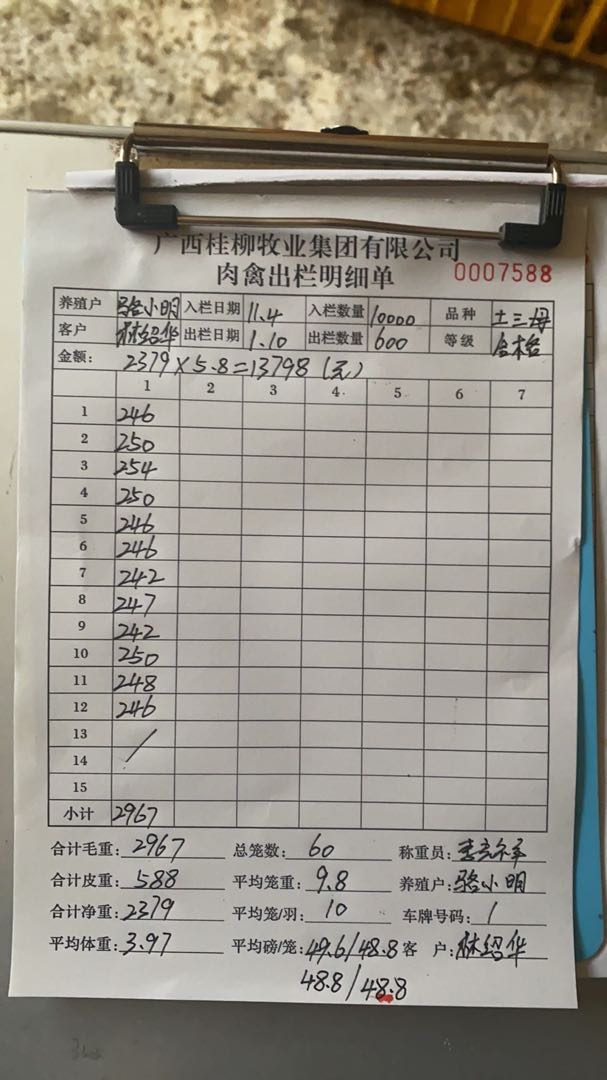 广西桂柳牧业集团有限公司
肉禽出栏明细单 0007588
养殖户 骆小明 入栏日期 11.4 入栏数量 10000 品种 土三母
客户 林绍华 出栏日期 1.10 出栏数量 600 等级 合格
金额: 2379×5.8=13798(元)
1 2 3 4 5 6 7
1 246
2 250
3 254
4 250
5 246
6 246
7 242
8 247
9 242
10 250
11 248
12 246
13
14 /
15
小计 2967
合计毛重: 2967 总笼数: 60 称重员:
合计皮重: 588 平均笼重: 9.8 养殖户: 骆小明
合计净重: 2379 平均笼/羽: 10 车牌号码: /
平均体重: 3.97 平均磅/笼: 49.6/48.8 客 户: 林绍华
48.8/48.8